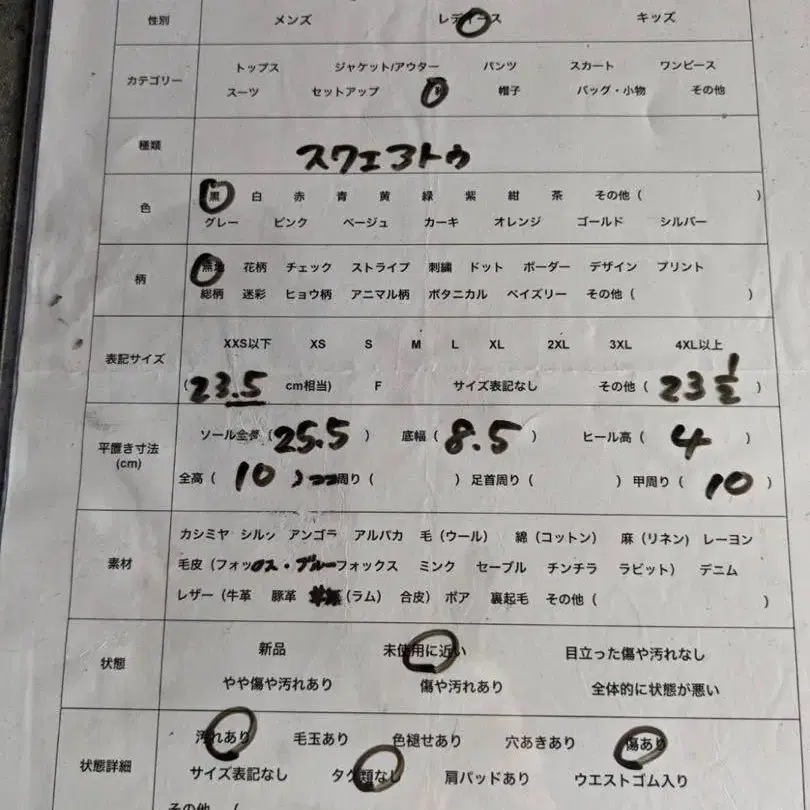 性別 メンズ レディース キッズ
カテゴリー
トップス ジャケット/アウター パンツ スカート ワンピース
スーツ セットアップ 帽子 バッグ・小物 その他
種類 スクエアトゥ
色
黒 白 赤 青 黄 緑 紫 紺 茶 その他 ( )
グレー ピンク ベージュ カーキ オレンジ ゴールド シルバー
柄
無地 花柄 チェック ストライプ 刺繍 ドット ボーダー デザイン プリント
総柄 迷彩 ヒョウ柄 アニマル柄 ボタニカル ペイズリー その他 ( )
表記サイズ
XXS以下 XS S M L XL 2XL 3XL 4XL以上
( 23.5 cm相当) F サイズ表記なし その他 ( 23 1/2 )
平置き寸法
(cm)
ソール全長 ( 25.5 ) 底幅 ( 8.5 ) ヒール高 ( 4 )
全高 ( 10 ) 周り ( ) 足首周り ( ) 甲周り ( 10 )
素材
カシミヤ シルク アンゴラ アルパカ 毛 (ウール) 綿 (コットン) 麻 (リネン) レーヨン
毛皮 (フォックス・ブルーフォックス ミンク セーブル チンチラ ラビット) デニム
レザー (牛革 豚革 (ラム) 合皮) ボア 裏起毛 その他 ( )
状態
新品 未使用に近い 目立った傷や汚れなし
やや傷や汚れあり 傷や汚れあり 全体的に状態が悪い
状態詳細
汚れあり 毛玉あり 色褪せあり 穴あきあり 傷あり
サイズ表記なし タグ類なし 肩パッドあり ウエストゴム入り
その他 (